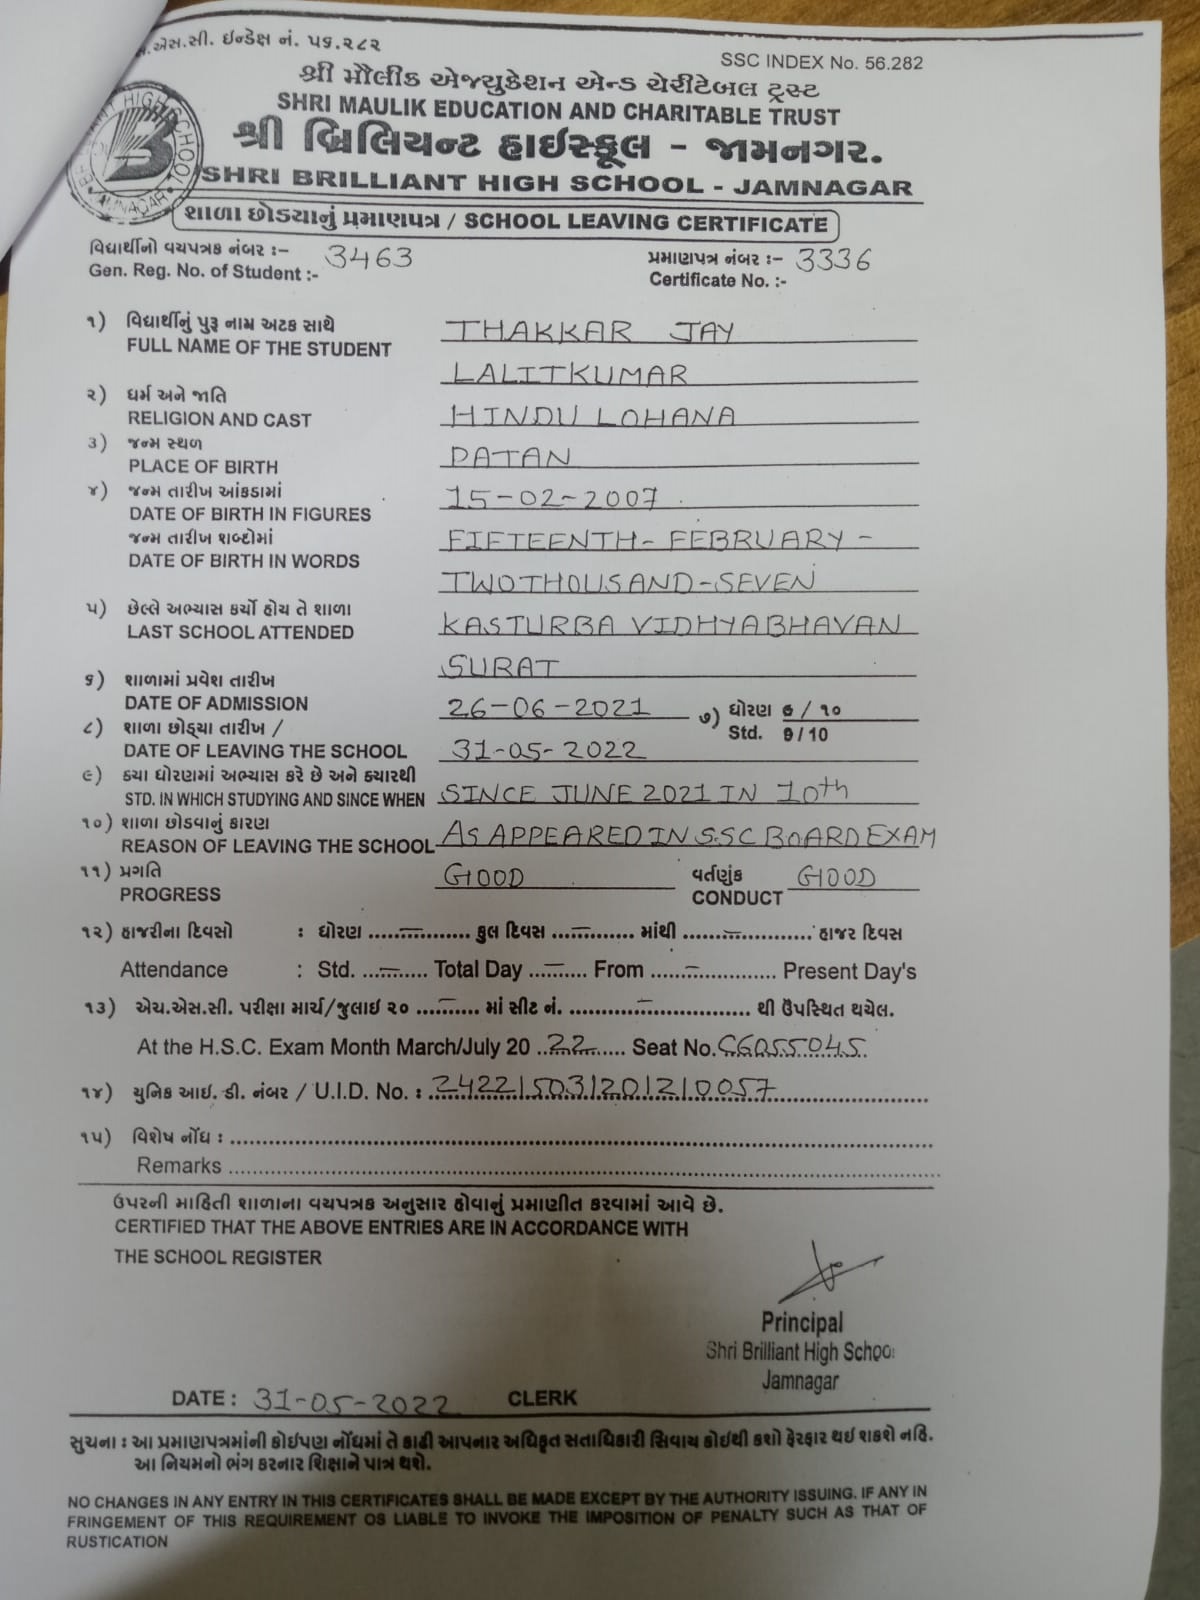 એસ.સી. ઈન્ડેક્ષ નં. ૫૬.૨૮૨
SSC INDEX No. 56.282
શ્રી મૌલીક એજ્યુકેશન એન્ડ ચેરીટેબલ ટ્રસ્ટ
SHRI MAULIK EDUCATION AND CHARITABLE TRUST
શ્રી બ્રિલિયન્ટ હાઈસ્કૂલ - જામનગર.
SHRI BRILLIANT HIGH SCHOOL - JAMNAGAR
શાળા છોડયાનું પ્રમાણપત્ર / SCHOOL LEAVING CERTIFICATE
વિદ્યાર્થીનો વયપત્રક નંબર :– 3463 પ્રમાણપત્ર નંબર :– 3336
Gen. Reg. No. of Student :- Certificate No. :-
૧) વિદ્યાર્થીનું પુરૂ નામ અટક સાથે THAKKAR JAY
FULL NAME OF THE STUDENT
LALITKUMAR
૨) ધર્મ અને જાતિ
RELIGION AND CAST HINDU LOHANA
૩) જન્મ સ્થળ
PLACE OF BIRTH PATAN
૪) જન્મ તારીખ આંકડામાં 15-02-2007
DATE OF BIRTH IN FIGURES
જન્મ તારીખ શબ્દોમાં FIFTEENTH- FEBRUARY -
DATE OF BIRTH IN WORDS
TWOTHOUSAND-SEVEN
૫) છેલ્લે અભ્યાસ કર્યો હોય તે શાળા KASTURBA VIDHYABHAVAN
LAST SCHOOL ATTENDED
SURAT
૬) શાળામાં પ્રવેશ તારીખ
DATE OF ADMISSION 26-06-2021 ૭) ધોરણ ૯ / ૧૦
Std. 9/10
૮) શાળા છોડ્યા તારીખ /
DATE OF LEAVING THE SCHOOL 31-05-2022
૯) કયા ધોરણમાં અભ્યાસ કરે છે અને ક્યારથી
STD. IN WHICH STUDYING AND SINCE WHEN SINCE JUNE 2021 IN 10th
૧૦) શાળા છોડવાનું કારણ
REASON OF LEAVING THE SCHOOL AS APPEARED IN S.SC BOARD EXAM
૧૧) પ્રગતિ GOOD વર્તણુંક GOOD
PROGRESS CONDUCT
૧૨) હાજરીના દિવસો : ધોરણ ....–........ કુલ દિવસ ...–....... માંથી ......–............ હાજર દિવસ
Attendance : Std. ...–..... Total Day ...–..... From .....–............ Present Day's
૧૩) એચ.એસ.સી. પરીક્ષા માર્ચ/જુલાઈ ૨૦ ....–..... માં સીટ નં. ..........–............... થી ઉપસ્થિત થયેલ.
At the H.S.C. Exam Month March/July 20 ..22...... Seat No. C6055045
૧૪) યુનિક આઈ. ડી. નંબર / U.I.D. No. : 242215031201210057
૧૫) વિશેષ નોંધ : ........................................
Remarks ........................................
ઉપરની માહિતી શાળાના વયપત્રક અનુસાર હોવાનું પ્રમાણીત કરવામાં આવે છે.
CERTIFIED THAT THE ABOVE ENTRIES ARE IN ACCORDANCE WITH
THE SCHOOL REGISTER
Principal
Shri Brilliant High School
Jamnagar
DATE : 31-05-2022 CLERK
સુચના : આ પ્રમાણપત્રમાંની કોઈપણ નોંધમાં તે કાઢી આપનાર અધિકૃત સતાધિકારી સિવાય કોઈથી કશો ફેરફાર થઈ શકશે નહિ.
આ નિયમનો ભંગ કરનાર શિક્ષાને પાત્ર થશે.
NO CHANGES IN ANY ENTRY IN THIS CERTIFICATES SHALL BE MADE EXCEPT BY THE AUTHORITY ISSUING. IF ANY IN
FRINGEMENT OF THIS REQUIREMENT OS LIABLE TO INVOKE THE IMPOSITION OF PENALTY SUCH AS THAT OF
RUSTICATION